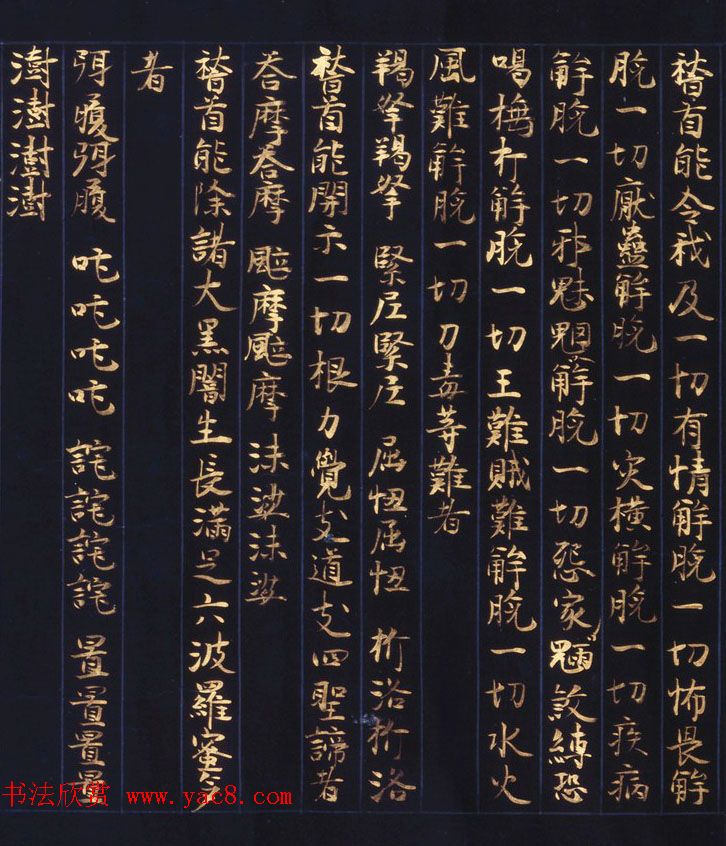 稽首能令我及一切有情解脫一切怖畏解
脫一切厭蠱解脫一切灾橫解脫一切疾病
解脫一切邪魅魍解脫一切怨家 縛恐
喝 打解脫一切王難賊難解脫一切水火
風難解脫一切刀毒等難者
羯拏羯拏 緊𡱝緊𡱝 屈忸屈忸 析洛析洛
稽首能開示一切根力覺支道支四聖諦者
荅摩荅摩 䬃摩䬃摩 沬娑沬娑
稽首能除諸大黑闇生長滿足六波羅蜜多
者
弭履弭履 吒吒吒吒 詫詫詫詫 置置置置
澍澍澍澍
书法欣赏 www.yac8.com